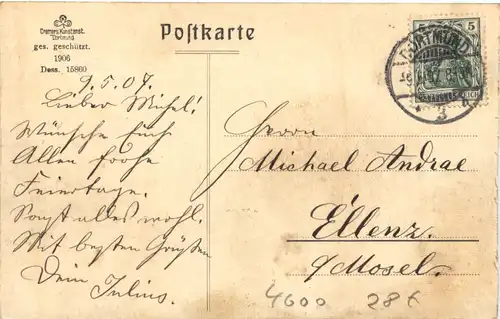 Cramers Kunstanst.
Dortmund
ges. geschützt.
1906
Dess. 15860
Postkarte
DORTMUND
5
9.5.07.
Lieber Michel!
Wünsche Euch
Allen frohe
Feiertage.
Sonst alles wohl.
Mit besten Grüßen
Dein Julius.
Herrn
Michael Andrae
Ellenz.
a/Mosel.
4600 28 €